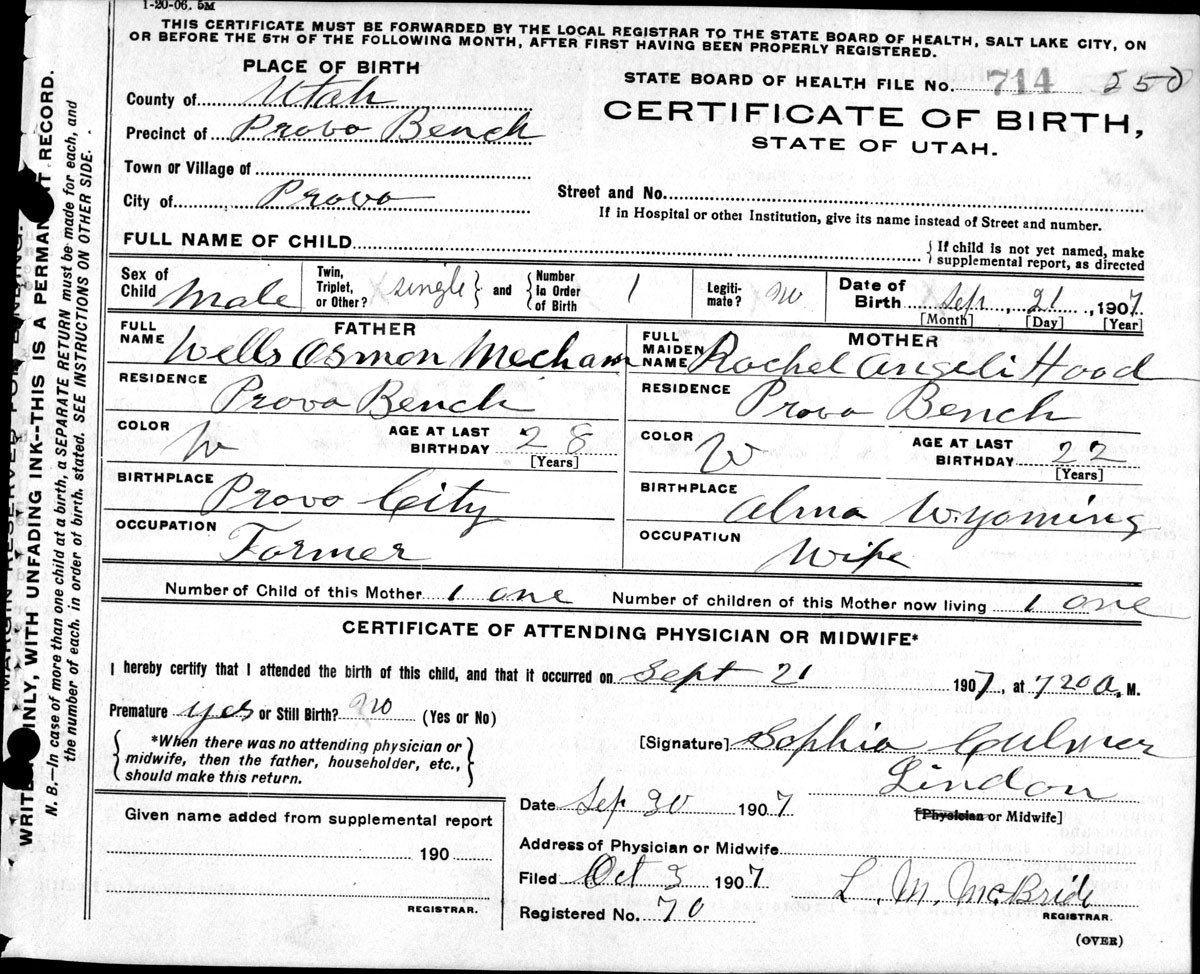 1-20-06. 5M
THIS CERTIFICATE MUST BE FORWARDED BY THE LOCAL REGISTRAR TO THE STATE BOARD OF HEALTH, SALT LAKE CITY, ON
OR BEFORE THE 5TH OF THE FOLLOWING MONTH, AFTER FIRST HAVING BEEN PROPERLY REGISTERED.
PLACE OF BIRTH
STATE BOARD OF HEALTH FILE No. 714 250
County of Utah
CERTIFICATE OF BIRTH,
Precinct of Provo Bench
STATE OF UTAH.
Town or Village of
Street and No.
City of Provo
If in Hospital or other Institution, give its name instead of Street and number.
FULL NAME OF CHILD
{ If child is not yet named, make
supplemental report, as directed
Sex of Child Male
Twin, Triplet, or Other? single } and { Number in Order of Birth 1
Legitimate? no
Date of Birth Sep 21, 1907
[Month] [Day] [Year]
FATHER
FULL NAME Wells Osmon Mecham
RESIDENCE
Provo Bench
COLOR W AGE AT LAST BIRTHDAY 28
[Years]
BIRTHPLACE
Provo City
OCCUPATION
Former
MOTHER
FULL MAIDEN NAME Rachel Angeli Hood
RESIDENCE
Provo Bench
COLOR W AGE AT LAST BIRTHDAY 22
[Years]
BIRTHPLACE
Alma Wyoming
OCCUPATION
Wife
Number of Child of this Mother 1 one Number of children of this Mother now living 1 one
CERTIFICATE OF ATTENDING PHYSICIAN OR MIDWIFE*
I hereby certify that I attended the birth of this child, and that it occurred on Sept 21 1907, at 720 a. M.
Premature yes or Still Birth? no (Yes or No)
{ *When there was no attending physician or
midwife, then the father, householder, etc.,
should make this return. }
[Signature] Sophia Culmer
Lindon
Date Sep 30 1907
[Physician or Midwife]
Given name added from supplemental report
190
REGISTRAR.
Address of Physician or Midwife
Filed Oct 3 1907 L. M. McBride
REGISTRAR.
Registered No. 70
(OVER)
MARGIN RESERVED FOR
INLY, WITH UNFADING INK--THIS IS A PERMANENT RECORD.
N. B.—In case of more than one child at a birth, a SEPARATE RETURN must be made for each, and
the number of each, in order of birth, stated. SEE INSTRUCTIONS ON OTHER SIDE.